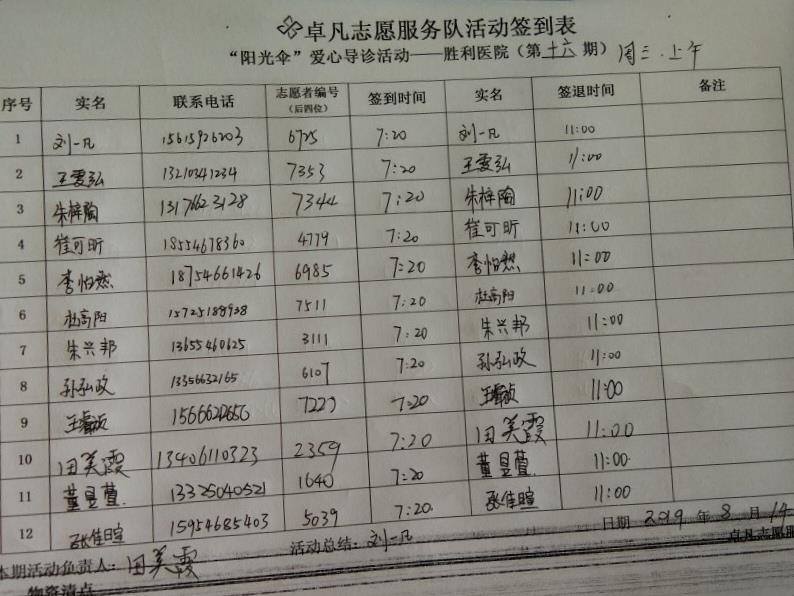 卓凡志愿服务队活动签到表
“阳光伞”爱心导诊活动——胜利医院（第十六期）周三.上午
序号 实名 联系电话 志愿者编号（后四位） 签到时间 实名 签退时间 备注
1 刘一凡 15615926203 6725 7:20 刘一凡 11:00
2 王雯弘 13210341234 7353 7:20 王雯弘 11:00
3 朱梓陶 13176623128 7344 7:20 朱梓陶 11:00
4 崔可昕 18554678360 4779 7:20 崔可昕 11:00
5 李怡然 18754661426 6985 7:20 李怡然 11:00
6 杜高阳 15725188928 7511 7:20 杜高阳 11:00
7 朱兴邦 13655460625 3111 7:20 朱兴邦 11:00
8 孙弘政 13356632165 6107 7:20 孙弘政 11:00
9 7:20 11:00
10 田美霞 13406110323 2359 7:20 田美霞 11:00
11 董昱萱 13325040521 1640 7:20 董昱萱 11:00
12 张佳暄 15954685403 5039 7:20 张佳暄 11:00
日期 2019 年 8 月 14
本期活动负责人：田美霞 活动总结：刘一凡 卓凡志愿服
物资清点